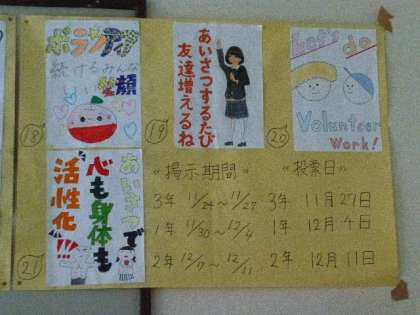 ボランティア
続けるみんな
笑顔
18
あいさつするたび
友達増えるね
19
Let's do
Volunteer
Work!
20
あいさつで
心も身体も
活性化!!!
21
《掲示期間》 《投票日》
3年 11/24~11/27 3年 11月27日
1年 11/30~12/4 1年 12月4日
2年 12/7~12/11 2年 12月11日